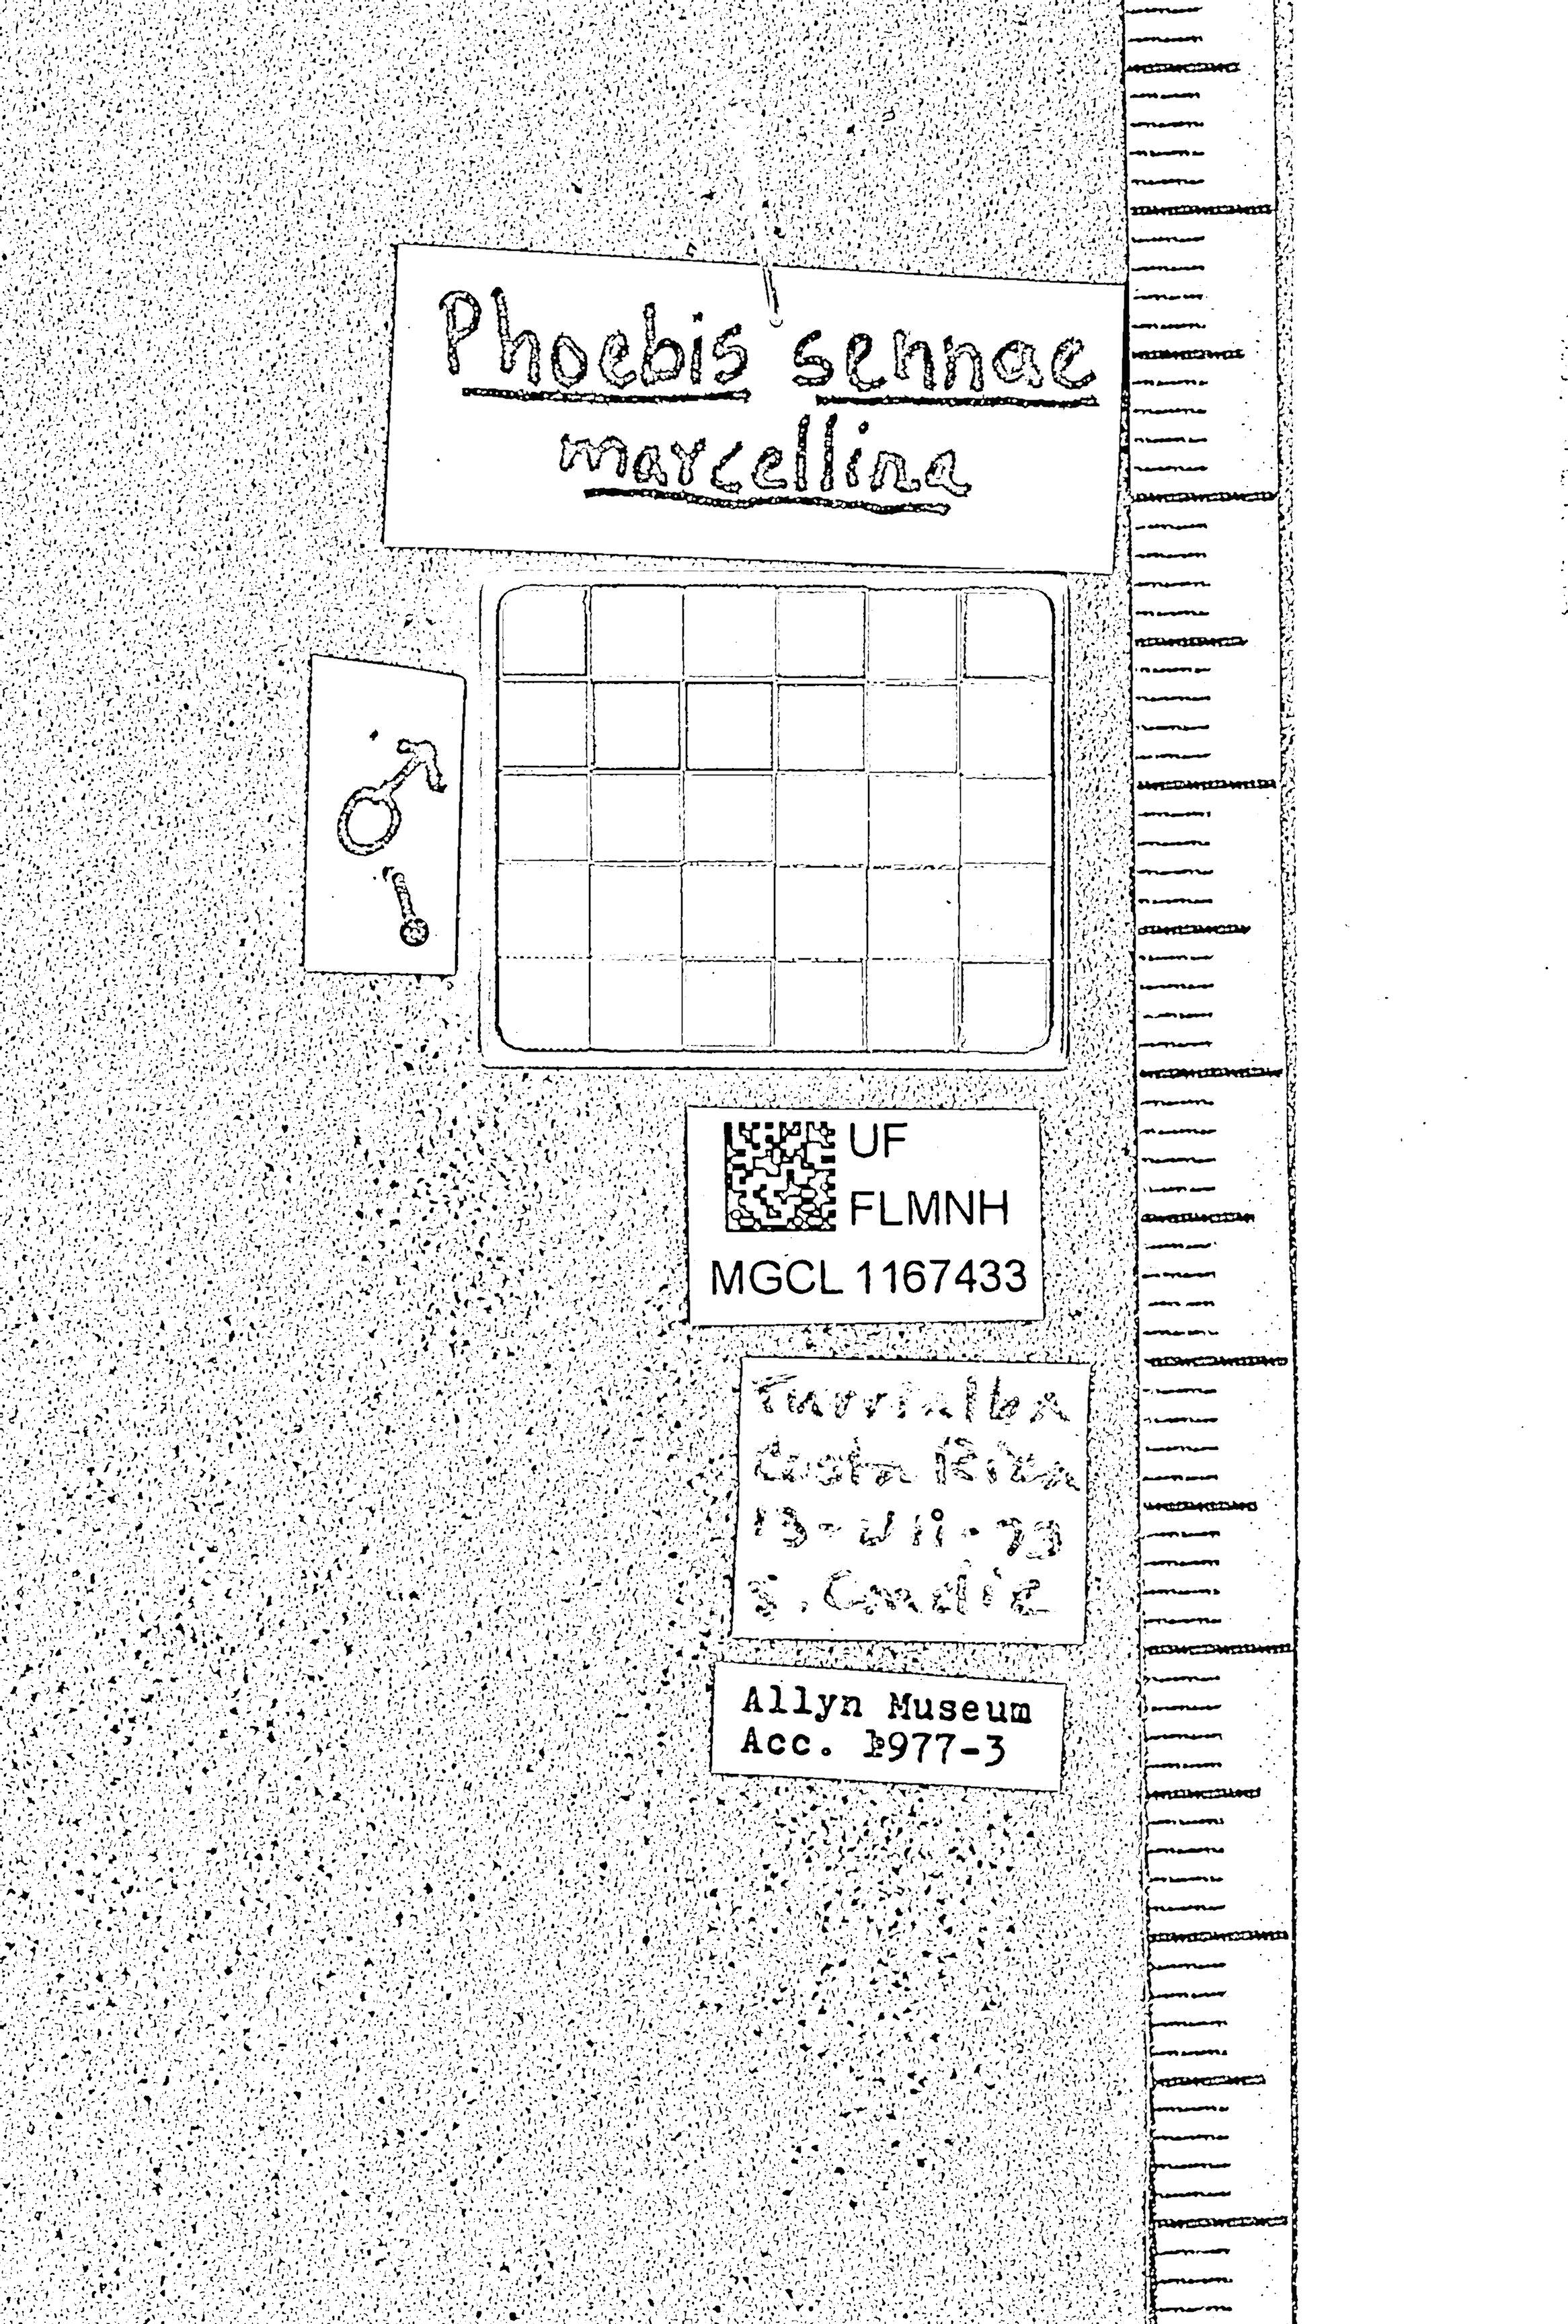 Phoebis sennae
marcellina
♂
UF
FLMNH
MGCL 1167433
Turrialba
Costa Rica
13-VII-73
Allyn Museum
Acc. 1977-3